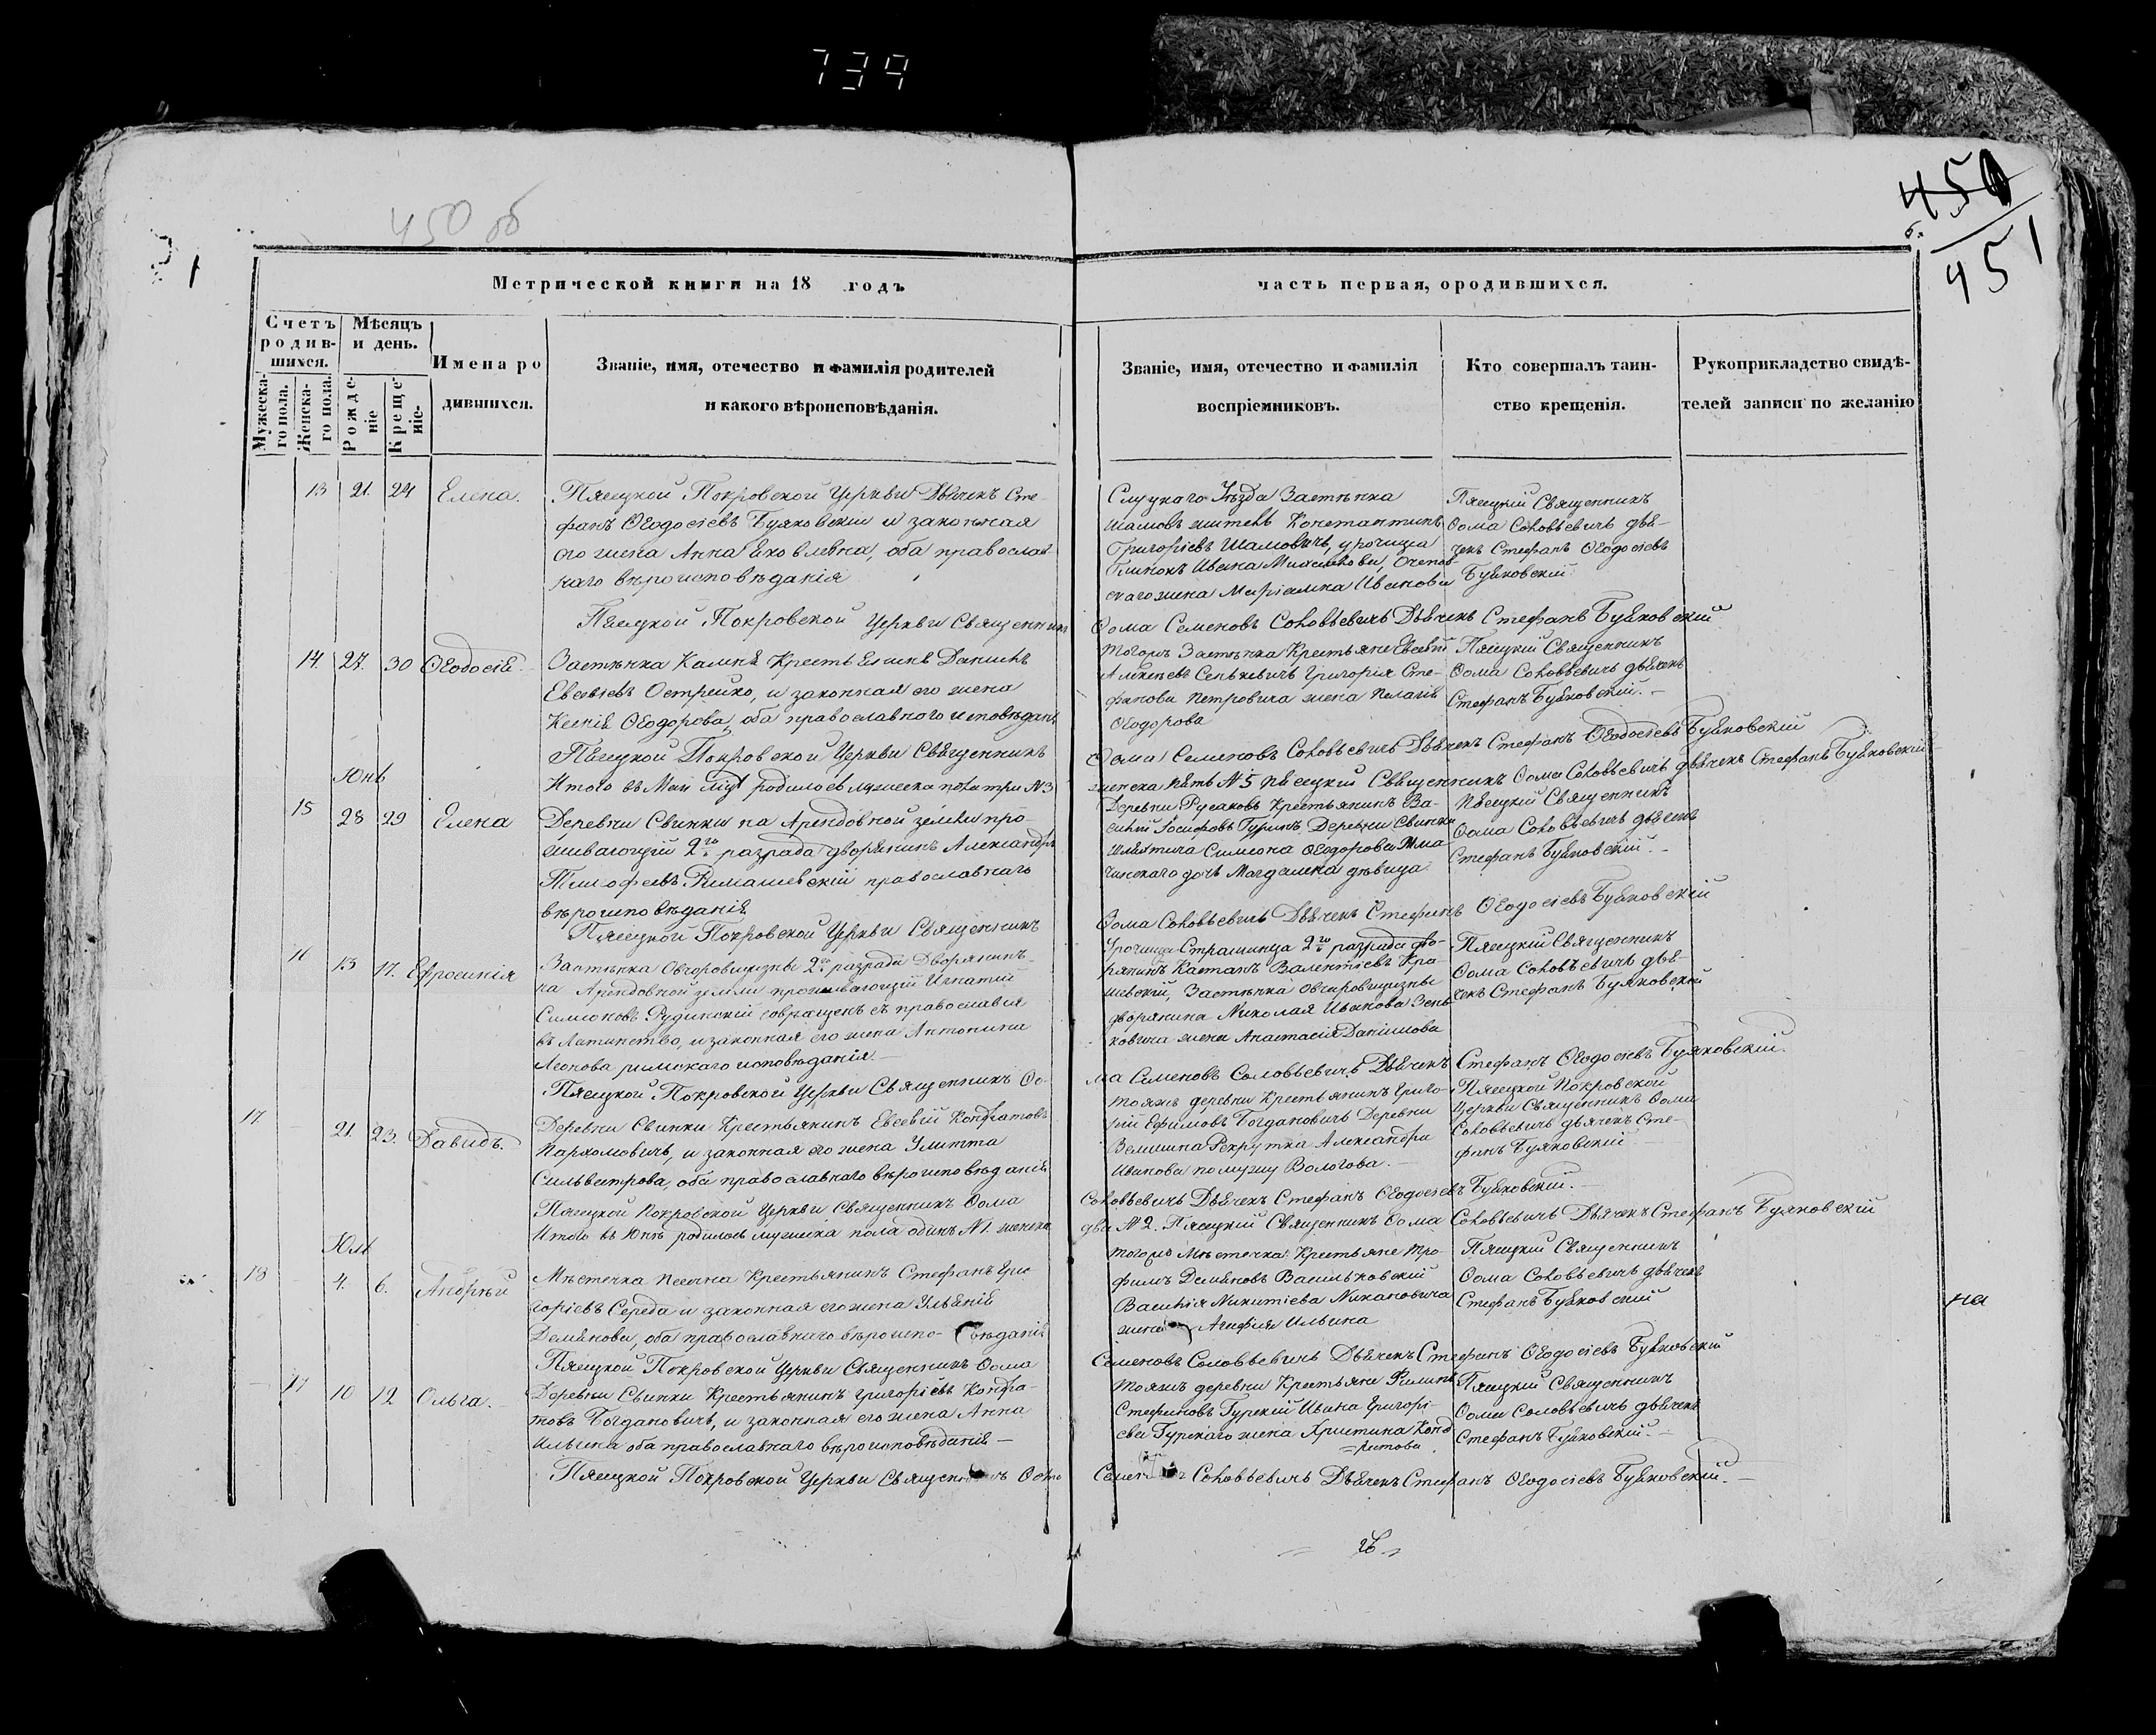 739
450 об
450
451
Метрической книги на 18 годъ
часть первая, ородившихся.
Счетъ родив-шихся.
Мѣсяцъ и день.
Мужеска-го пола.
Женска-го пола.
Рожде-ніе
Креще-ніе.
Имена ро
дившихся.
Званіе, имя, отечество и фамилія родителей
и какого вѣроисповѣданія.
Званіе, имя, отечество и фамилія
воспріемниковъ.
Кто совершалъ таин-
ство крещенія.
Рукоприкладство свидѣ-
телей записи по желанію
13 21. 24 Елена.
Пясецкой Покровской Церкви Дьячекъ Сте-
фанъ Ѳеодосіевъ Буяковскій и законная
его жена Анна Яковлевна, оба православ
наго вѣроисповѣданія
Слуцкаго Уѣзда Застѣнка
житель Константинъ
Григоріевъ Шамовичъ, урочища
скаго жена Маріанна Иванова
Пясецкій Священникъ
Ѳома Соловьевичъ дья-
чекъ Стефанъ Ѳеодосіевъ
Буяковскій
Пясецкой Покровской Церкви Священникъ
Ѳома Семеновъ Соловьевичъ Дьячекъ Стефанъ Буяковскій
14. 27. 30 Ѳеодосія.
Застѣнка Крестьянинъ Даніилъ
Евсѣевъ Острейко, и законная его жена
Ксенія Ѳеодорова, оба православного исповѣданія
Тогожъ Застѣнка Крестьяне Евсевій
Алексѣевъ Сенькевичъ Григорія Сте-
фанова Петровича жена Пелагія
Ѳеодорова
Пясецкій Священникъ
Ѳома Соловьевичъ дьячекъ
Стефанъ Буяковскій.
Пясецкой Покровской Церкви Священникъ
Ѳома Семеновъ Соловьевичъ Дьячекъ Стефанъ Ѳеодосіевъ Буяковскій
Итого въ Маи родилось мужеска пола три №3
женска пять №5 Пясецкій Священникъ Ѳома Соловьевичъ дьячекъ Стефанъ Буяковскій
Юнь
15 28 29 Елена
Деревни Свинки на Арендовной земли про-
живающій 2го разрада дворянинъ Александръ
Тимофеевъ Римашевскій православнаго
вѣроисповѣданія
Деревни Русаковъ Крестьянинъ Ва-
силій Іосифовъ Гуринъ, Деревни Свинки
шляхтича Симеона Ѳеодорова
дочь Магдалена дѣвица
Пясецкій Священникъ
Ѳома Соловьевичъ дьячекъ
Стефанъ Буяковскій.
Пясецкой Покровской Церкви Священникъ
Ѳома Соловьевичъ Дьячекъ Стефанъ Ѳеодосіевъ Буяковскій
16 13 17. Ефросинія
Застѣнка Овчаровщизны 2го разрада Дворянинъ
на Арендовной земли проживающій Игнатій
Симеоновъ Рудинскій совращенъ съ православія
въ Латинство, и законная его жена Антонина
Леонова римскаго исповѣданія.
Урочища Страшница 2го разрада дво-
рянинъ Каетанъ Валентіевъ Кра-
шевскій, Застѣнка Овчаровщизны
дворянина Николая Иванова Зень
ковича жена Анастасія Даніилова
Пясецкій Священникъ
Ѳома Соловьевичъ дья-
чекъ Стефанъ Буяковскій
Пясецкой Покровской Церкви Священникъ Ѳо-
ма Семеновъ Соловьевичъ Дьячекъ Стефанъ Ѳеодосіевъ Буяковскій.
17. 21. 23. Давидъ.
Деревни Свинки Крестьянинъ Евсевій Кондратовъ
Пархомовичъ, и законная его жена Улитта
Сильвестрова, оба православнаго вѣроисповѣданія
Тояжъ деревни Крестьянинъ Григо-
рій Ефимовъ Богдановичъ Деревни
Велишина Рекрутка Александра
Иванова по мужу Вологова.
Пясецкой Покровской
Церкви Священникъ Ѳома
Соловьевичъ дьячекъ Сте-
фанъ Буяковскій
Пясецкой Покровской Церкви Священникъ Ѳома
Соловьевичъ Дьячекъ Стефанъ Ѳеодосіевъ Буяковскій.
Итого въ Юнѣ родилось мужеска пола одинъ №1. женска
два №2. Пясецкій Священникъ Ѳома Соловьевичъ Дьячекъ Стефанъ Буяковскій
Юль
18 4. 6. Андрѣй
Мѣстечка Песочна Крестьянинъ Стефанъ Гри
горіевъ Середа и законная его жена Ульянія
Демянова, оба православнаго вѣроиспо-вѣданія
Тогожъ Мѣстечка Крестьяне Тро-
фимъ Демьяновъ Васильковскій
Василія Никитіева Михановича
жена Агафія Ильина
Пясецкій Священникъ
Ѳома Соловьевичъ дьячекъ
Стефанъ Буяковскій
на
Пясецкой Покровской Церкви Священникъ Ѳома
Семеновъ Соловьевичъ Дьячекъ Стефанъ Ѳеодосіевъ Буяковскій
17 10 12 Ольга.
Деревни Свинки Крестьянинъ Григоріевъ Кондра-
товъ Богдановичъ, и законная его жена Анна
Ильина оба православнаго вѣроисповѣданія
Тояжъ деревни Крестьяне Филипъ
Стефановъ Гурскій Ивана Григорі-
ева Гурскаго жена Христина Конд
ратова
Пясецкій Священникъ
Ѳома Соловьевичъ дьячекъ
Стефанъ Буяковскій.
Пясецкой Покровской Церкви Священникъ Ѳома
Семеновъ Соловьевичъ Дьячекъ Стефанъ Ѳеодосіевъ Буяковскій.